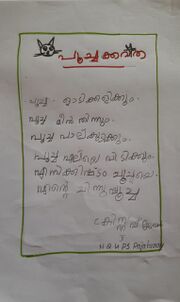 പൂച്ചക്കവിത
പൂച്ച ഓടിക്കളിക്കും.
പൂച്ച മീൻ തിന്നും.
പൂച്ച പാല്കുടിക്കും.
പൂച്ച എലിയെ പിടിക്കും.
എനിക്കിഷ്ടം പൂച്ചയെ.
എന്റെ ചിന്നുപൂച്ച